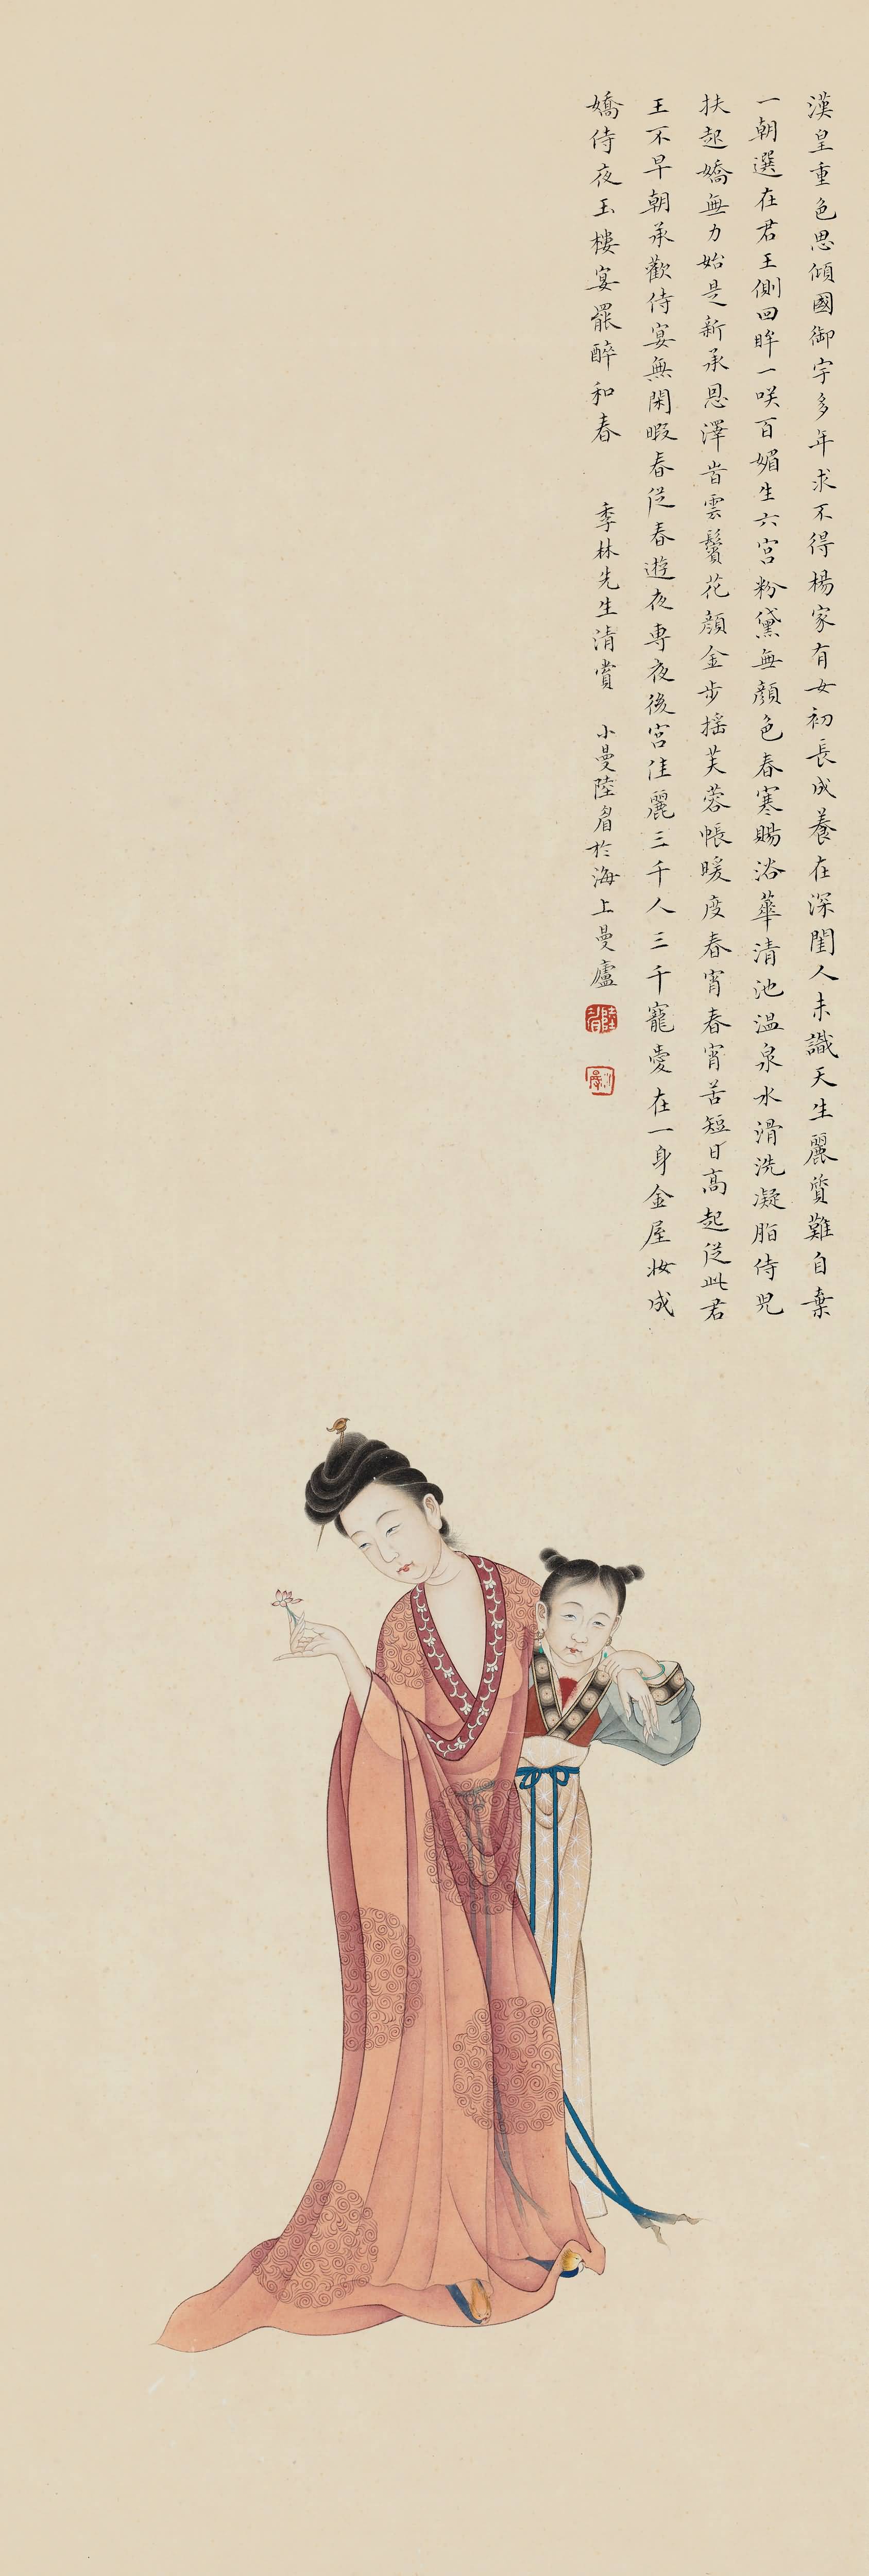 漢皇重色思傾國御宇多年求不得楊家有女初長成養在深閨人未識天生麗質難自棄
一朝選在君王側回眸一咲百媚生六宮粉黛無顏色春寒賜浴華清池温泉水滑洗凝脂侍兒
扶起嬌無力始是新承恩澤旹雲鬢花顏金步搖芙蓉帳暖度春宵春宵苦短日高起從此君
王不早朝承歡侍宴無閑暇春從春遊夜專夜後宮佳麗三千人三千寵愛在一身金屋妝成
嬌侍夜玉樓宴罷醉和春 季林先生清賞 小曼陸眉於海上曼廬
陸眉
小曼